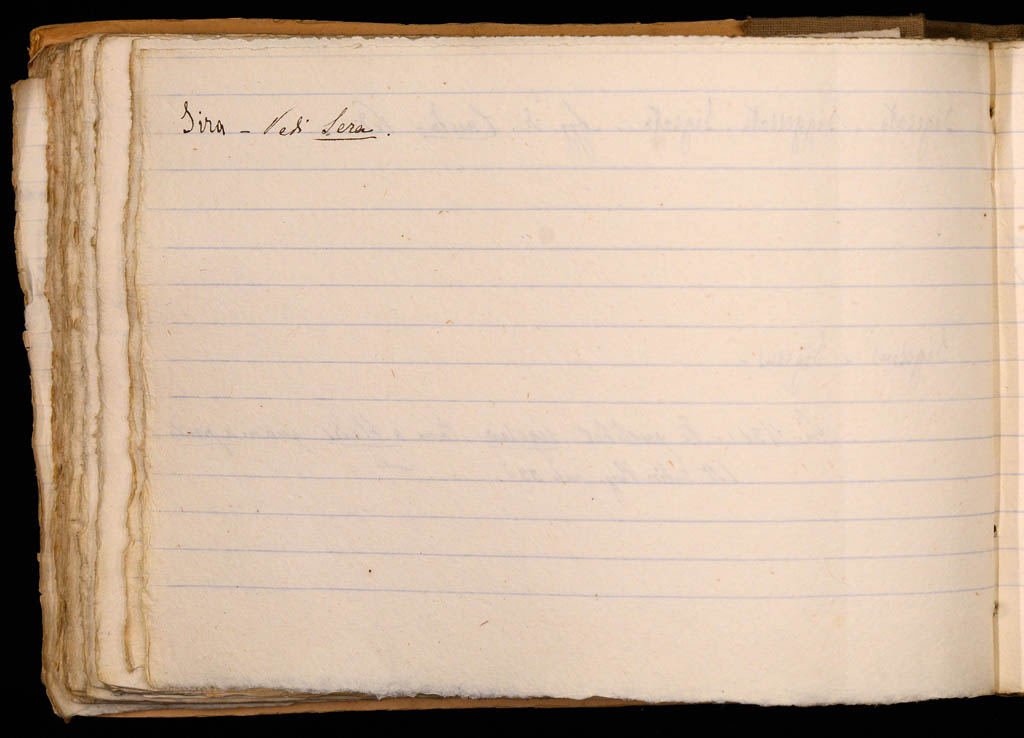 Sira - Vedi Sera.